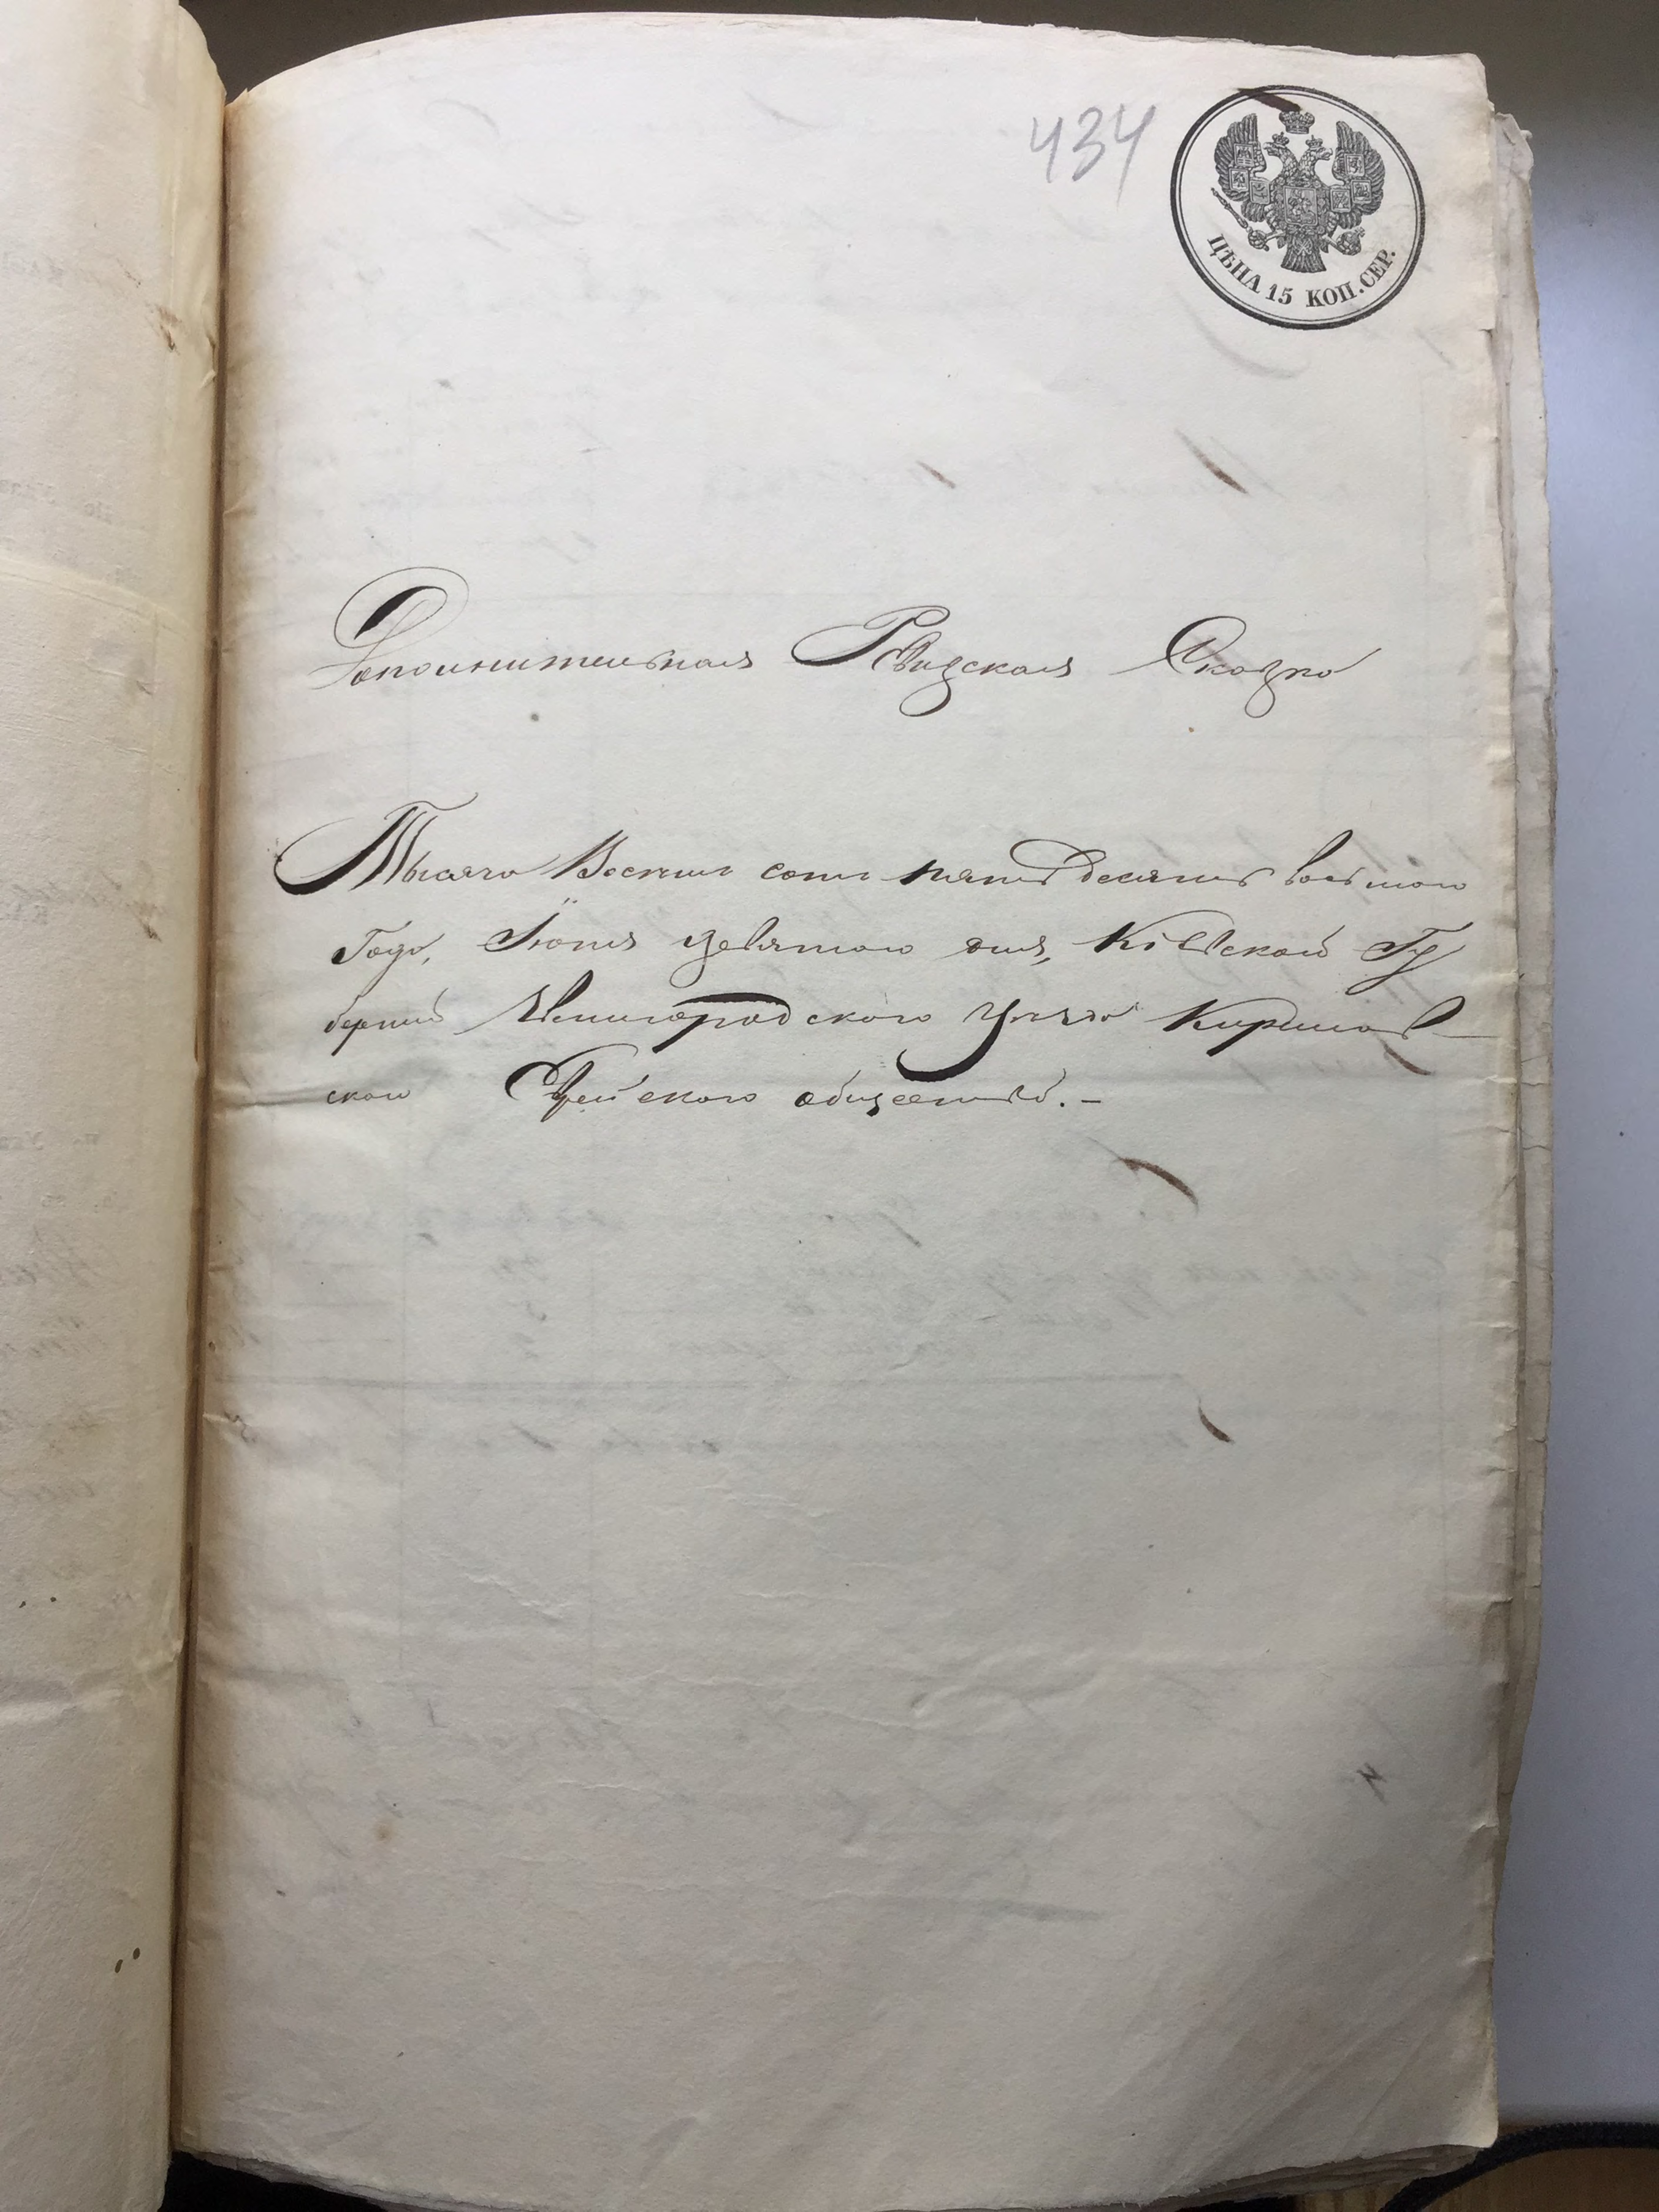 434
ЦѢНА 15 КОП. СЕР.
Дополнительная Ревизская Сказка
Тысяча Восемь сотъ пятьдесятъ восьмого
Года, Іюня девятого дня, Кіевской Гу
берніи Звенигородского уѣзда Кирилов
ского Еврейского общества. –